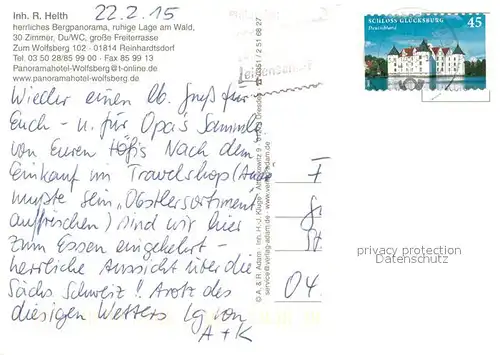 Inh. R. Helth
22.2.15
herrliches Bergpanorama, ruhige Lage am Wald,
30 Zimmer, Du/WC, große Freiterrasse
Zum Wolfsberg 102 · 01814 Reinhardtsdorf
Tel. 03 50 28/85 99 00 · Fax 85 99 13
Panoramahotel-Wolfsberg@t-online.de
www.panoramahotel-wolfsberg.de
Wieder einen lb. Gruß für
Euch - u. für Opa's Samml.
von Euren Höfis Nach dem
Einkauf im Travelshop (Andre
mußte sein „Obstlersortiment
auffrischen) sind wir hier
zum Essen eingekehrt -
herrliche Aussicht über die
Sächs Schweiz! Trotz des
diesigen Wetters Lg von
A + K
© A. & R. Adam · Inh. H.-J. Kluge · 9 · Dresden · 0351 / 2 51 68 27
service@verlag-adam.de · www.verlag-adam.de
SCHLOSS GLÜCKSBURG
45
Deutschland
F
St
04
privacy protection
Datenschutz